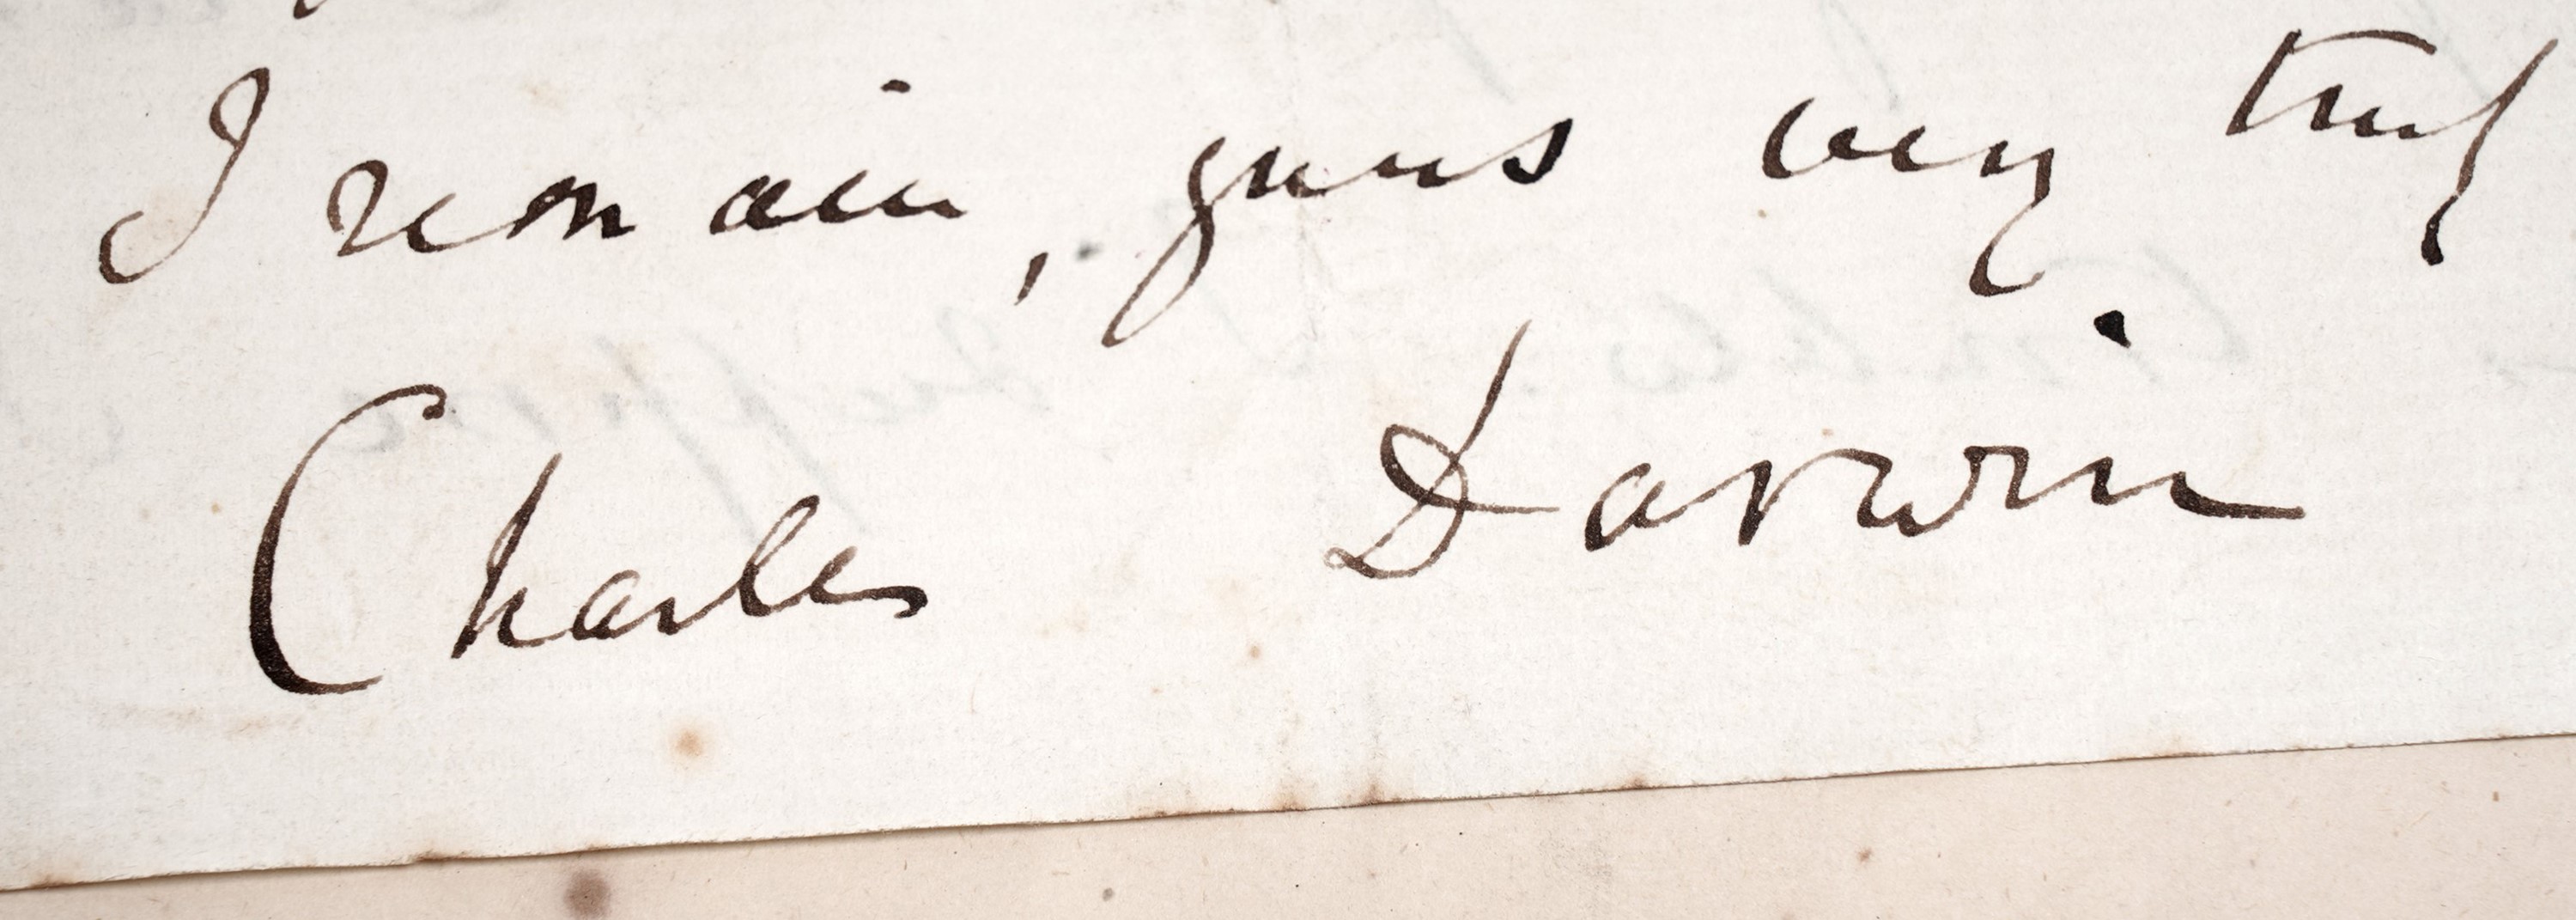 I remain, yours very truly
Charles Darwin